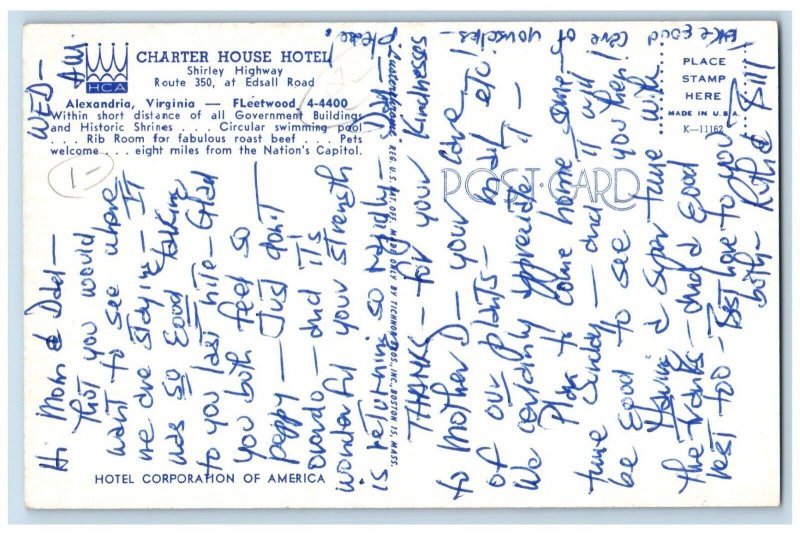 HCA
CHARTER HOUSE HOTEL
Shirley Highway
Route 350, at Edsall Road
Alexandria, Virginia — FLeetwood 4-4400
Within short distance of all Government Buildings
and Historic Shrines . . . Circular swimming pool
. . . Rib Room for fabulous roast beef . . . Pets
welcome . . . eight miles from the Nation's Capitol.
HOTEL CORPORATION OF AMERICA
POST CARD
PLACE
STAMP
HERE
MADE IN U.S.A.
K-11162
REG. U.S. PAT. OFF. MADE ONLY BY TICHNOR BROS., INC., BOSTON 15, MASS.
WED — AM
Hi Mom & Dad —
Thot you would
want to see where
we are staying — It
was so good talking
to you last nite — Glad
you both feel so
peppy — Just don't
overdo — and it's
wonderful your strength
is returning so rapidly — Dad —
please!
THANKS — for your kindnesses
to Mother D — your care
of our plants — mail etc!
We certainly appreciate it —
Plan to come home some-
time Sunday — and it will
be good to see you then!
Having a super time with
the — and a good
rest too — Best love to you
both — Ruth &
Take good care of yourselves —
1-